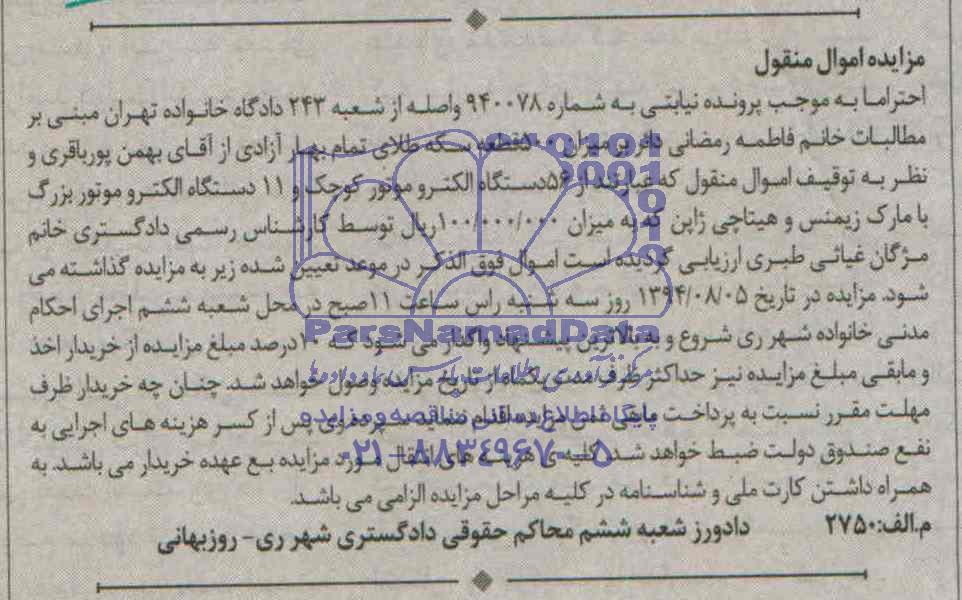 مزایده اموال منقول
احتراما به موجب پرونده نیابتی به شماره ۹۴۰۰۷۸ واصله از شعبه ۲۴۳ دادگاه خانواده تهران مبنی بر
مطالبات خانم فاطمه رمضانی دائر بر میزان ۵۰۰قطعه سکه طلای تمام بهار آزادی از آقای بهمن پورباقری و
نظر به توقیف اموال منقول که عبارتند از ۵۶دستگاه الکترو موتور کوچک و ۱۱ دستگاه الکترو موتور بزرگ
با مارک زیمنس و هیتاچی ژاپن که به میزان ۱۰۰/۰۰۰/۰۰۰ریال توسط کارشناس رسمی دادگستری خانم
مژگان غیاثی طبری ارزیابی گردیده است اموال فوق الذکر در موعد تعیین شده زیر به مزایده گذاشته می
شود. مزایده در تاریخ ۱۳۹۴/۰۸/۰۵ روز سه شنبه راس ساعت ۱۱صبح در محل شعبه ششم اجرای احکام
مدنی خانواده شهر ری شروع و به بالاترین پیشنهاد واگذار می شود که ۱۰درصد مبلغ مزایده از خریدار اخذ
و مابقی مبلغ مزایده نیز حداکثر ظرف مدت یکماه از تاریخ مزایده وصول خواهد شد. چنان چه خریدار ظرف
مهلت مقرر نسبت به پرداخت مابقی ثمن مزایده اقدام ننماید سپرده وی پس از کسر هزینه های اجرایی به
نفع صندوق دولت ضبط خواهد شد. کلیه ی هزینه های انتقال مورد مزایده بع عهده خریدار می باشد. به
همراه داشتن کارت ملی و شناسنامه در کلیه مراحل مزایده الزامی می باشد.
م.الف:۲۷۵۰ دادورز شعبه ششم محاکم حقوقی دادگستری شهر ری- روزبهانی
ParsNamadData
پایگاه اطلاع رسانی مناقصه و مزایده
۰۲۱-۸۸۳۴۹۶۷۰-۵